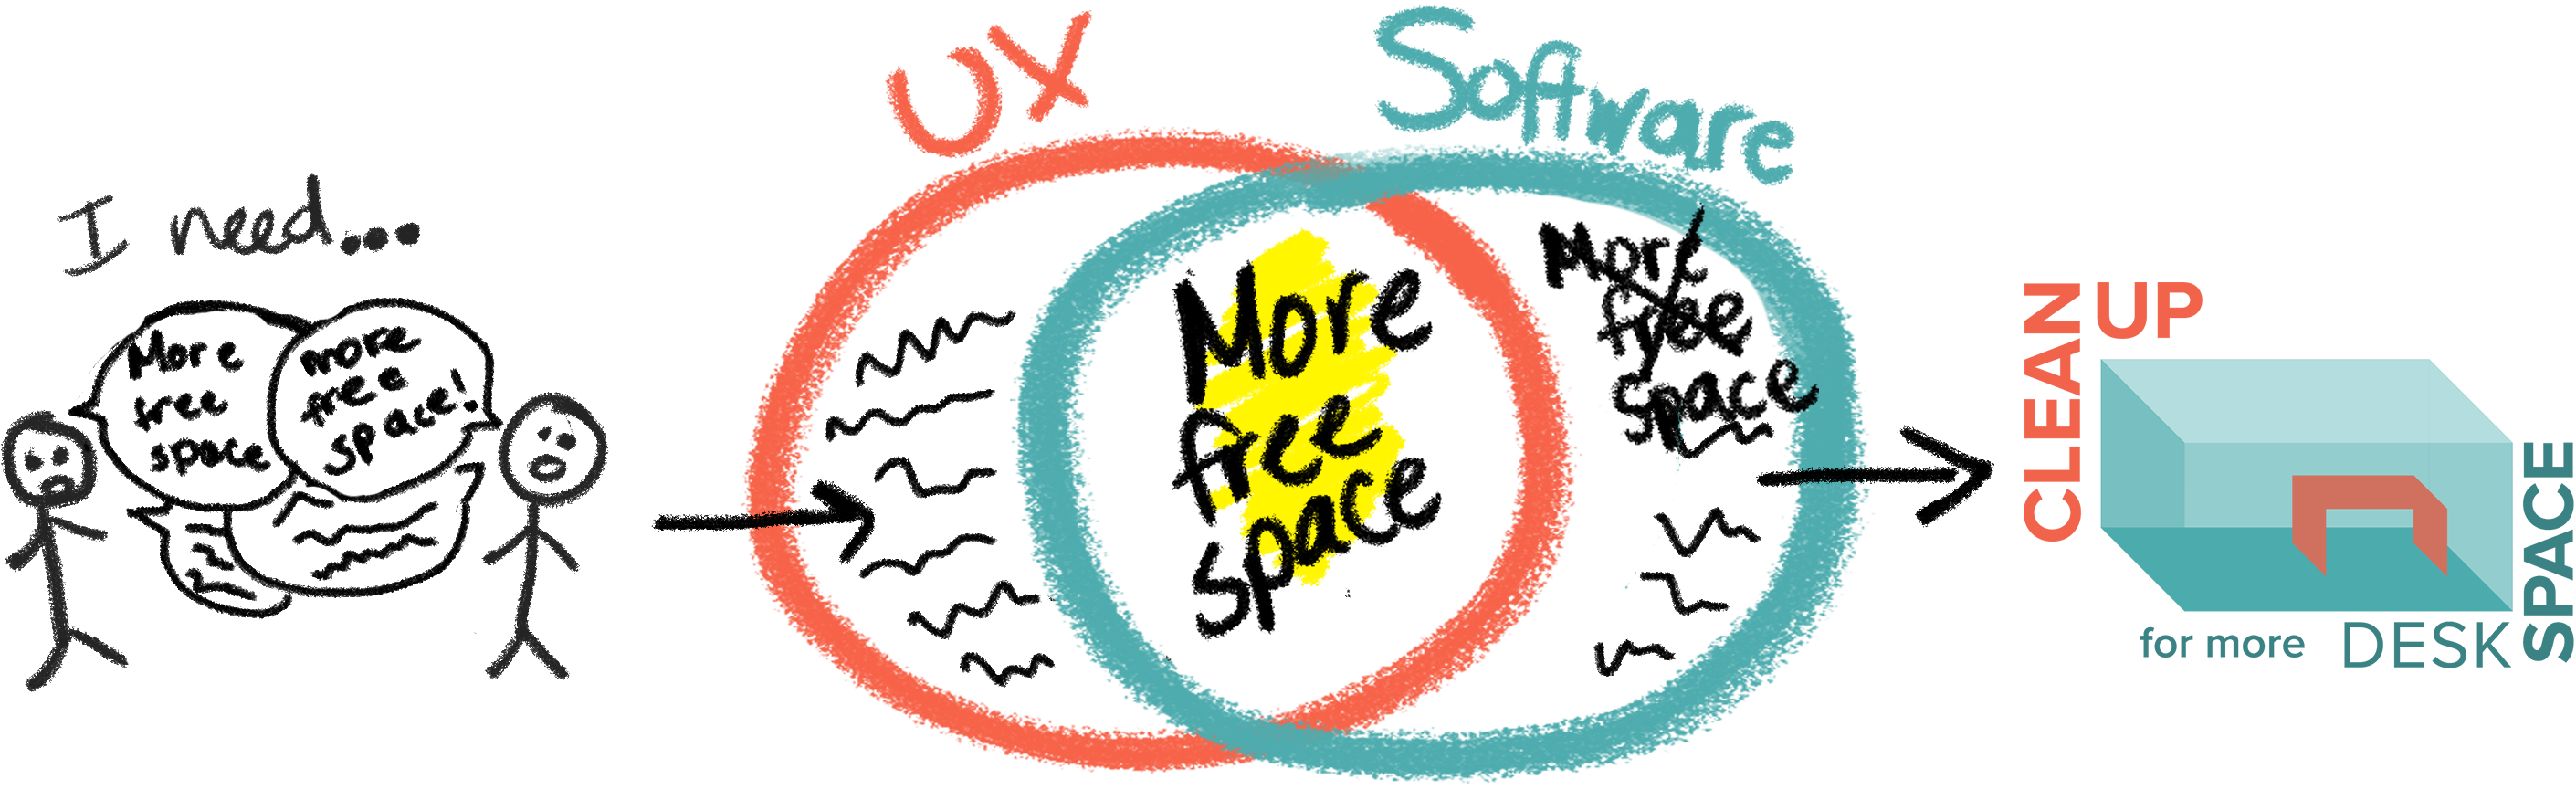 I need...
More
free
space
more
free
space!
UX
Software
More
free
space
More
free
space
CLEAN UP
for more DESK SPACE